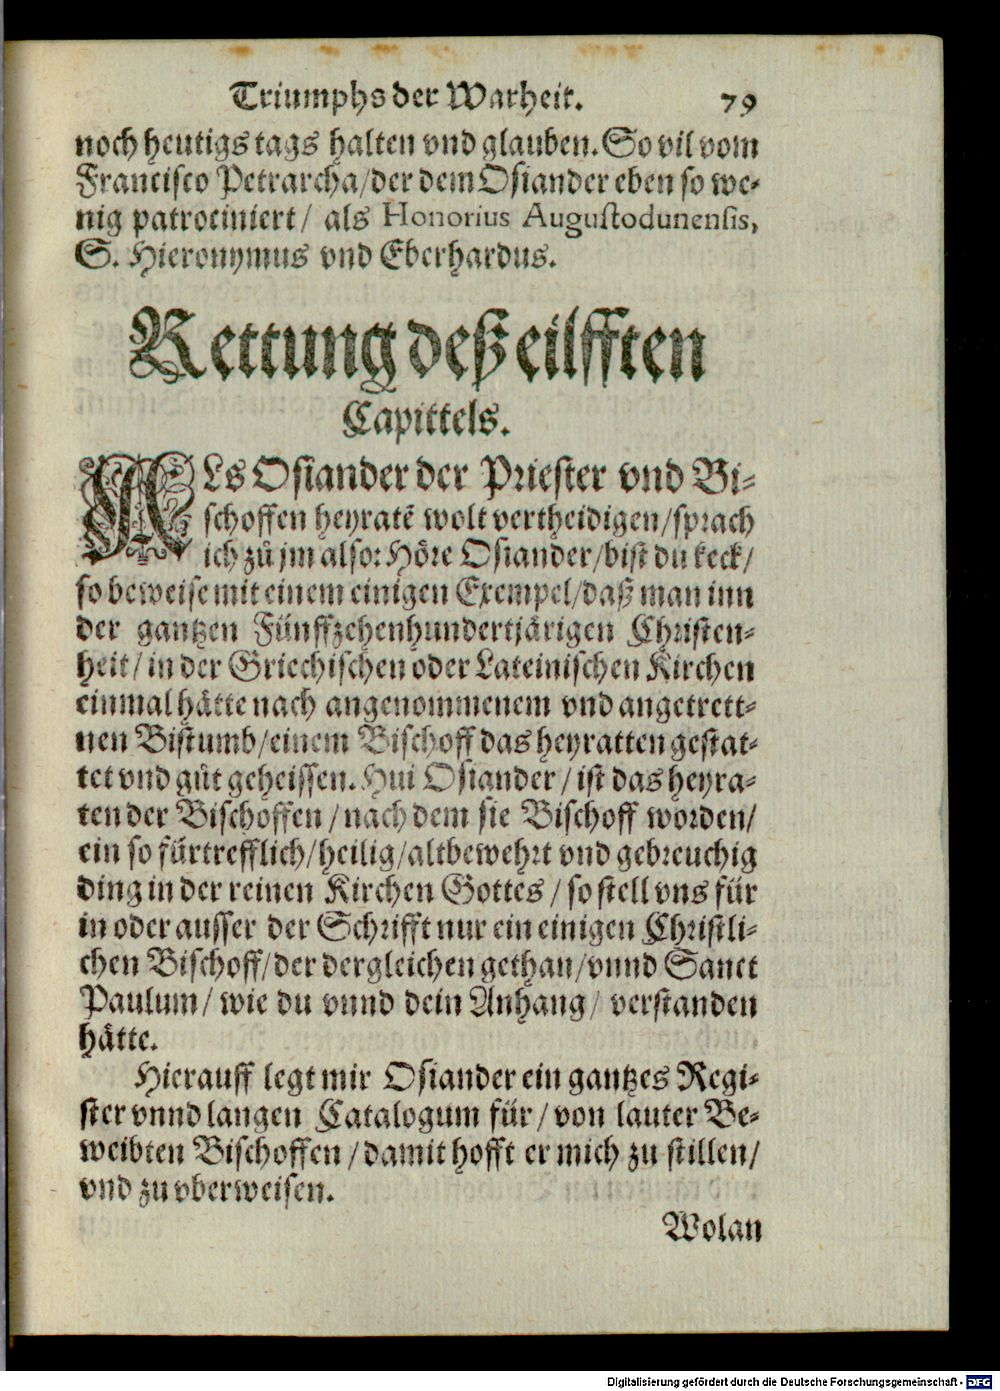 Triumphs der Warheit. 79
noch heutigs tags halten vnd glauben. So vil vom
Francisco Petrarcha/ der dem Osiander eben so we-
nig patrociniert/ als Honorius Augustodunensis,
S. Hieronymus vnd Eberhardus.
Rettung deß eilfften
Capittels.
ALs Osiander der Priester vnd Bi-
schoffen heyratē wolt vertheidigen/ sprach
ich zů jm also: Höre Osiander/ bist du keck/
so beweise mit einem einigen Exempel/ daß man inn
der gantzen Fünffzehenhundertjärigen Christen-
heit/ in der Griechischen oder Lateinischen Kirchen
einmal hätte nach angenommenem vnd angetrett-
nen Bistumb/ einem Bischoff das heyratten gestat-
tet vnd gůt geheissen. Hui Osiander/ ist das heyra-
ten der Bischoffen/ nach dem sie Bischoff worden/
ein so fürtrefflich/ heilig/ altbewehrt vnd gebreuchig
ding in der reinen Kirchen Gottes/ so stell vns für
in oder ausser der Schrifft nur ein einigen Christli-
chen Bischoff/ der dergleichen gethan/ vnnd Sanct
Paulum/ wie du vnnd dein Anhang/ verstanden
hätte.
Hierauff legt mir Osiander ein gantzes Regi-
ster vnnd langen Catalogum für/ von lauter Be-
weibten Bischoffen/ damit hofft er mich zu stillen/
vnd zu vberweisen.
Wolan
Digitalisierung gefördert durch die Deutsche Forschungsgemeinschaft - DFG